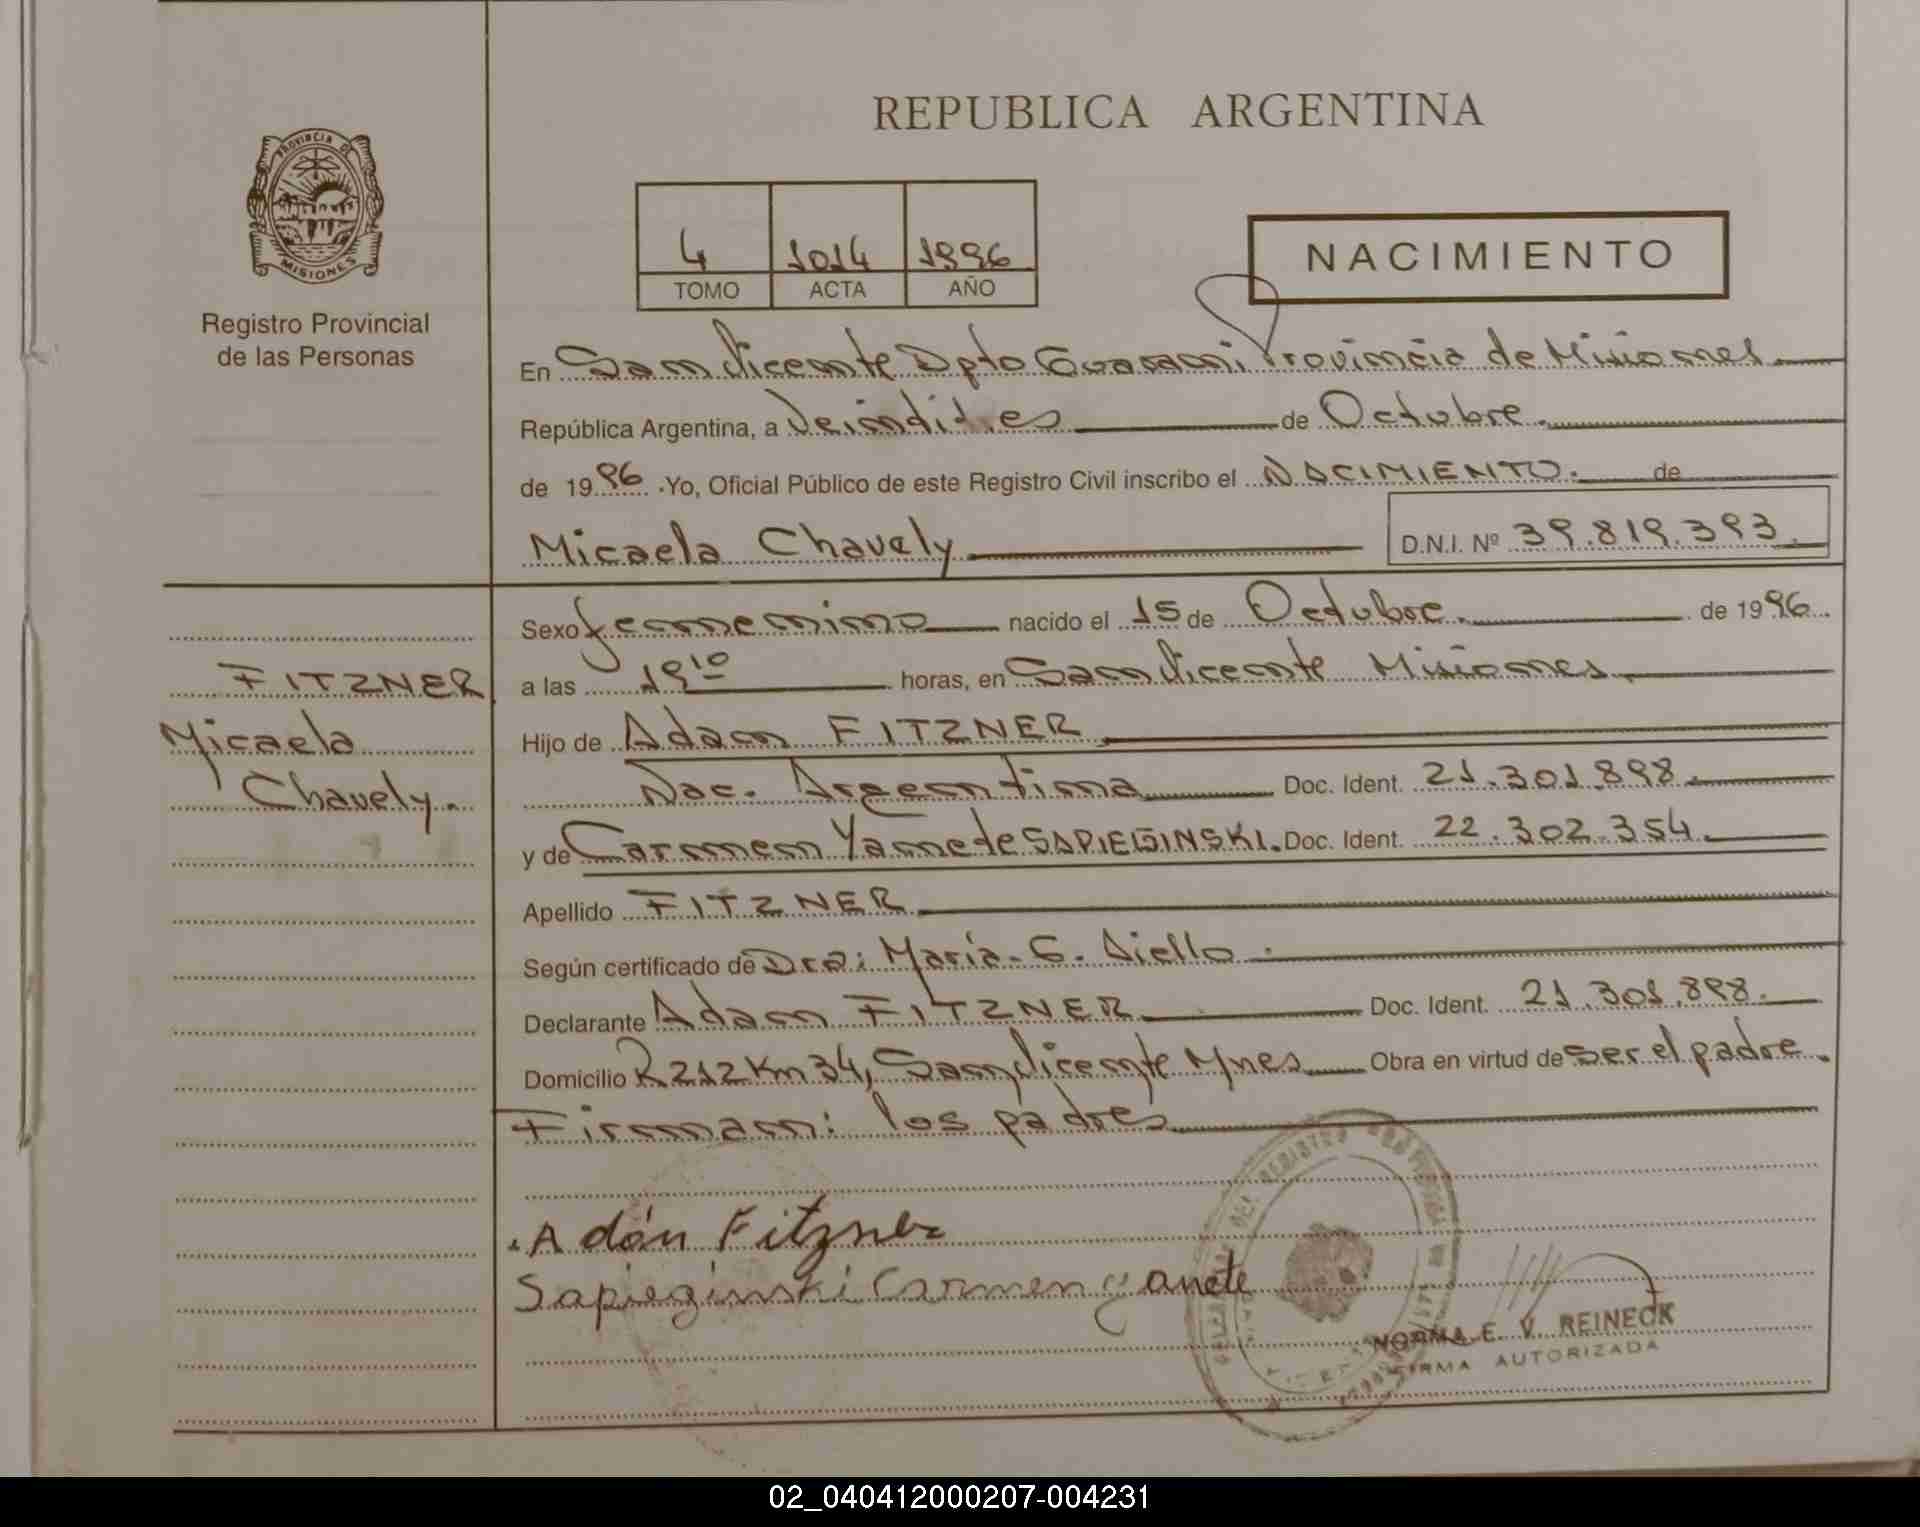 REPUBLICA ARGENTINA
PROVINCIA DE
MISIONES
Registro Provincial
de las Personas
4 1014 1996
TOMO ACTA AÑO
NACIMIENTO
En San Vicente Dpto Guarani Provincia de Misiones
República Argentina, a Veintitres de Octubre.
de 1996 .Yo, Oficial Público de este Registro Civil inscribo el NACIMIENTO. de
Micaela Chavely D.N.I. Nº 39.819.393.
FITZNER
Micaela
Chavely.
Sexo femenino nacido el 15 de Octubre. de 1996.
a las 19 10 horas, en San Vicente Misiones.
Hijo de Adan FITZNER
Nac. Argentina Doc. Ident. 21.301.898.
y de Carmen Yanete SAPIEGINSKI. Doc. Ident. 22.302.354.
Apellido FITZNER
Según certificado de Dra: María. G. Aiello.
Declarante Adan FITZNER Doc. Ident. 21.301.898.
Domicilio R212 Km 34, San Vicente Mnes Obra en virtud de ser el padre.
Firman: los padres
.Adán Fitzner
Sapieginski Carmen yanete
NORMA E. V. REINECK
FIRMA AUTORIZADA
02_040412000207-004231